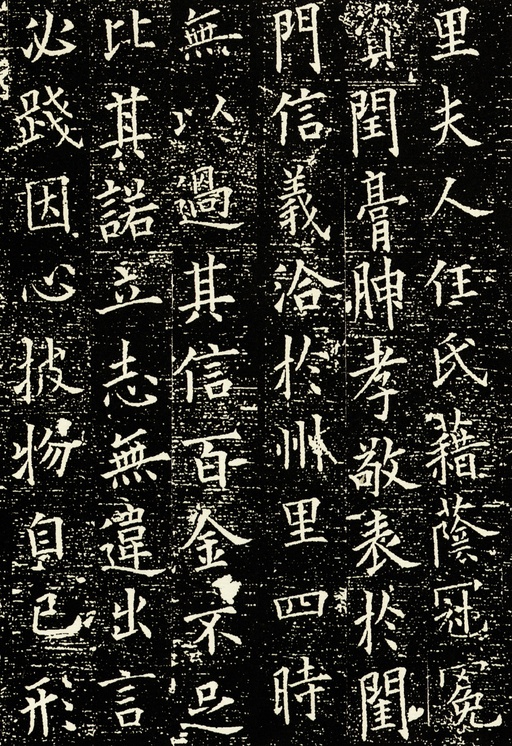 里夫人任氏藉蔭冠冕
資閏膏腴孝敬表於閨
門信義洽於州里四時
無以過其信百金不足
比其諾立志無違出言
必踐因心披物自己形